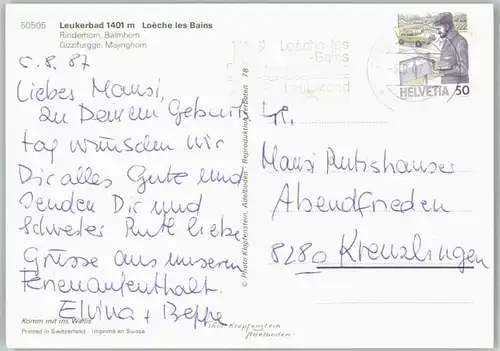 50505 Leukerbad 1401 m Loèche les Bains
Rinderhorn, Balmhorn
Gizzifurgge, Majinghorn
6.8.87
Liebes Mansi,
zu Deinem Geburts
tag wünschen wir
Dir alles Gute und
senden Dir und
Schwester Ruth liebe
Grüsse aus unserem
Ferienaufenthalt.
Elvira + Beppe
Komm mit ins Wallis
Printed in Switzerland - Imprimé en Suisse
Photo Klopfenstein
Adelboden
© Photo Klopfenstein, Adelboden - Reproduktion verboten 78
Loèche-les
-Bains
HELVETIA 50
Mansi Rutishauser
Abendfrieden
8280 Kreuzlingen